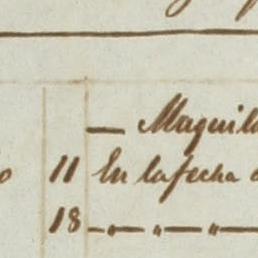 — Maquil
11 En la fecha
18 — „ — „ —